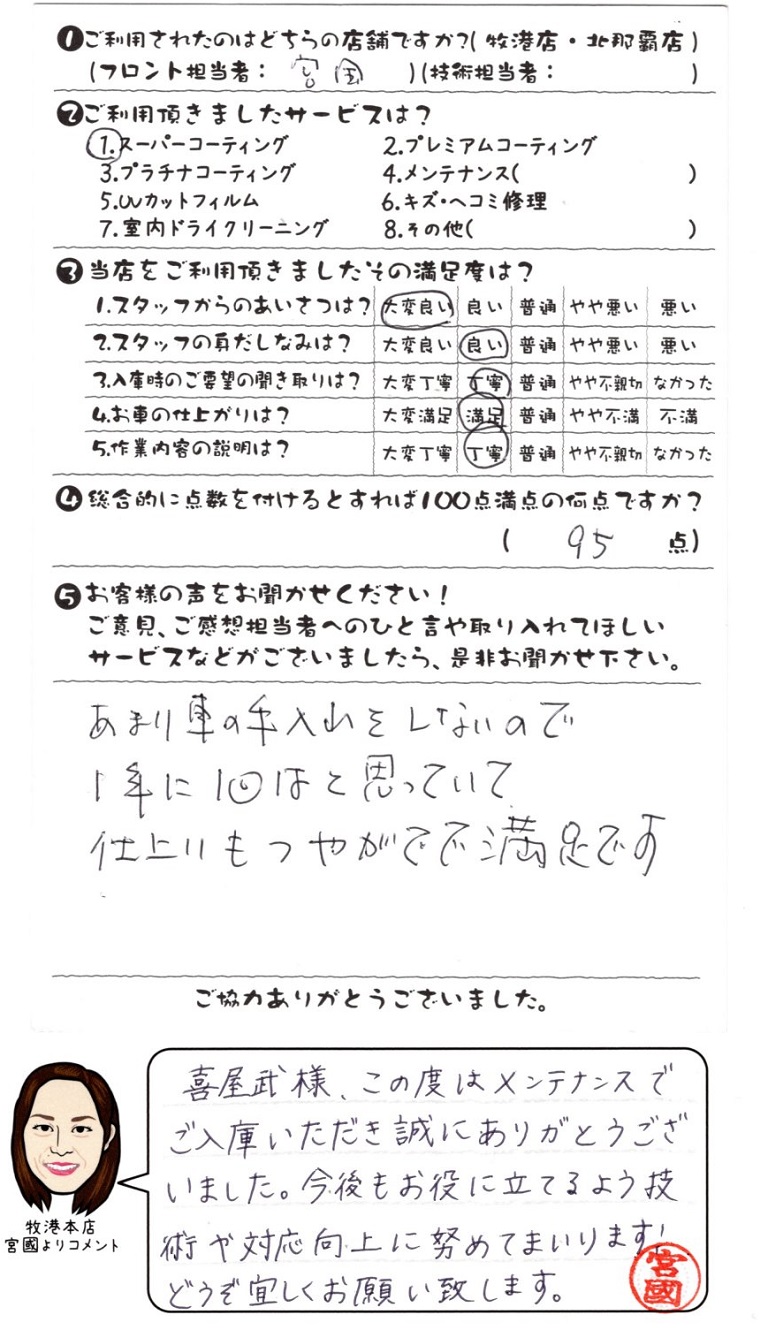 ❶ご利用されたのはどちらの店舗ですか?(牧港店・北那覇店)
(フロント担当者: 宮国 )(技術担当者: )
❷ご利用頂きましたサービスは?
1.スーパーコーティング 2.プレミアムコーティング
3.プラチナコーティング 4.メンテナンス( )
5.UVカットフィルム 6.キズ・ヘコミ修理
7.室内ドライクリーニング 8.その他( )
❸当店をご利用頂きましたその満足度は?
1.スタッフからのあいさつは? 大変良い 良い 普通 やや悪い 悪い
2.スタッフの身だしなみは? 大変良い 良い 普通 やや悪い 悪い
3.入庫時のご要望の聞き取りは? 大変丁寧 丁寧 普通 やや不親切 なかった
4.お車の仕上がりは? 大変満足 満足 普通 やや不満 不満
5.作業内容の説明は? 大変丁寧 丁寧 普通 やや不親切 なかった
❹総合的に点数を付けるとすれば100点満点の何点ですか?
( 95 点)
❺お客様の声をお聞かせください!
ご意見、ご感想担当者へのひと言や取り入れてほしい
サービスなどがございましたら、是非お聞かせ下さい。
あまり車の手入れをしないので
1年に1回はと思っていて
仕上りもつやがでで満足です
ご協力ありがとうございました。
喜屋武様、この度はメンテナンスで
ご入庫いただき誠にありがとうござ
いました。今後もお役に立てるよう技
術や対応向上に努めてまいります!
どうぞ宜しくお願い致します。
宮國
牧港本店
宮國よりコメント